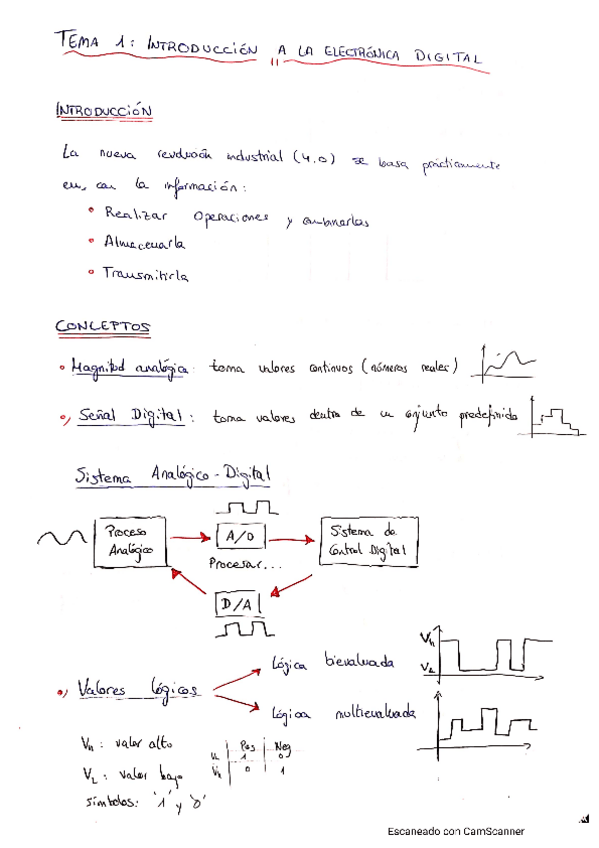 TEMA 1: INTRODUCCIÓN A LA ELECTRÓNICA DIGITAL
INTRODUCCIÓN
La nueva revolución industrial (4.0) se basa prácticamente
en, con la información:
• Realizar operaciones y combinarlas
• Almacenarla
• Transmitirla
CONCEPTOS
• Magnitud analógica: toma valores continuos (números reales)
•) Señal Digital: toma valores dentro de un conjunto predefinido
Sistema Analógico-Digital
Proceso Analógico
A/D
Procesar...
Sistema de Control Digital
D/A
•) Valores lógicos
Lógica bievaluada
Lógica multievaluada
VH
VL
VH: valor alto
VL: valor bajo
símbolos: '1' y '0'
Pos Neg
1 0
0 1
Escaneado con CamScanner